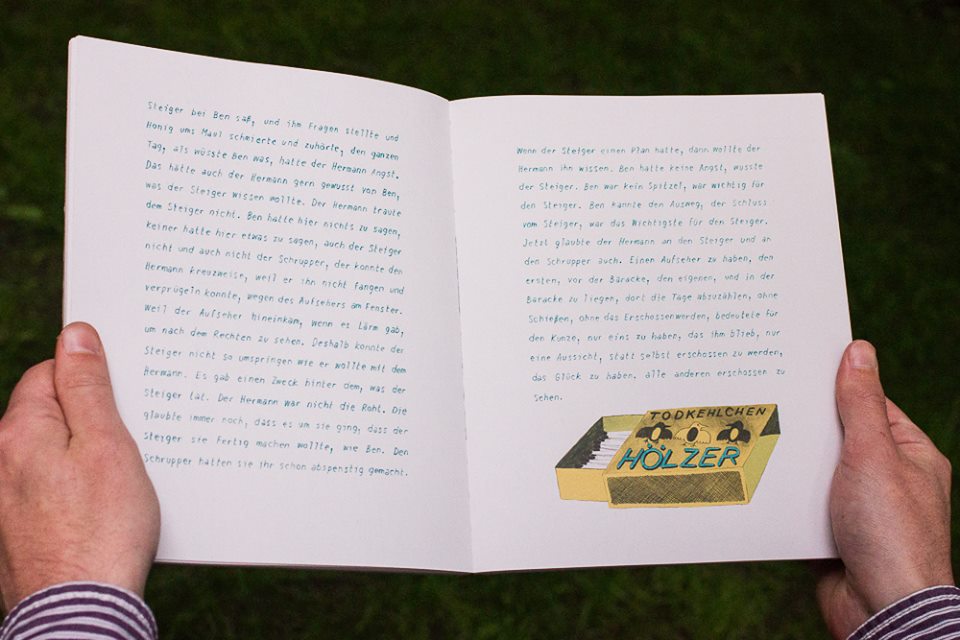 Steiger bei Ben saß, und ihm Fragen stellte und
Honig ums Maul schmierte und zuhörte, den ganzen
Tag, als wüsste Ben was, hatte der Hermann Angst.
Das hätte auch der Hermann gern gewusst von Ben,
was der Steiger wissen wollte. Der Hermann traute
dem Steiger nicht. Ben hatte hier nichts zu sagen,
keiner hatte hier etwas zu sagen, auch der Steiger
nicht und auch nicht der Schrupper, der konnte den
Hermann kreuzweise, weil er ihn nicht fangen und
verprügeln konnte, wegen des Aufsehers am Fenster.
Weil der Aufseher hineinkam, wenn es Lärm gab,
um nach dem Rechten zu sehen. Deshalb konnte der
Steiger nicht so umspringen wie er wollte mit dem
Hermann. Es gab einen Zweck hinter dem, was der
Steiger tat. Der Hermann war nicht die Roht. Die
glaubte immer noch, dass es um sie ging, dass der
Steiger sie fertig machen wollte, wie Ben. Den
Schrupper hatten sie ihr schon abspenstig gemacht.
Wenn der Steiger einen Plan hatte, dann wollte der
Hermann ihn wissen. Ben hatte keine Angst, wusste
der Steiger. Ben war kein Spitzel, war wichtig für
den Steiger. Ben kannte den Ausweg, der Schluss
vom Steiger, war das Wichtigste für den Steiger.
Jetzt glaubte der Hermann an den Steiger und an
den Schrupper auch. Einen Aufseher zu haben, den
ersten, vor der Baracke, den eigenen, und in der
Baracke zu liegen, dort die Tage abzuzählen, ohne
Schießen, ohne das Erschossenwerden, bedeutete für
den Kunze, nur eins zu haben, das ihm blieb, nur
eine Aussicht, statt selbst erschossen zu werden,
das Glück zu haben, alle anderen erschossen zu
sehen.
TODKEHLCHEN
HÖLZER